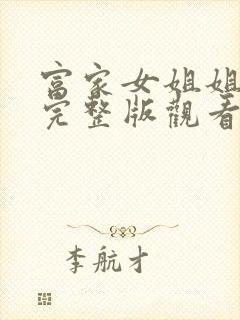 富家女姐姐
完整版觀看
李航才